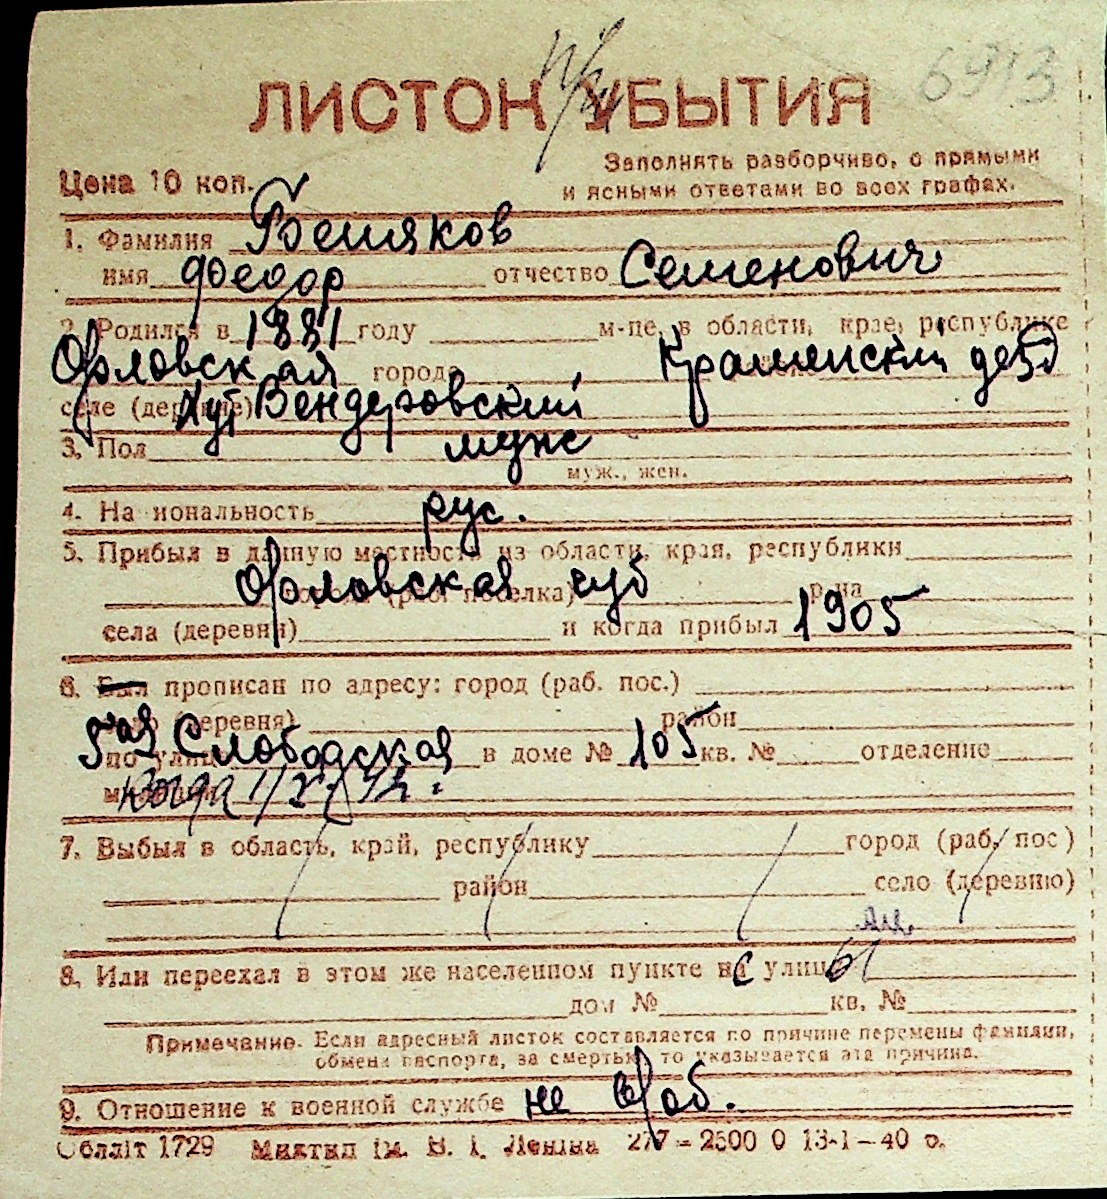 6913
ЛИСТОК УБЫТИЯ
Заполнять разборчиво, с прямыми
и ясными ответами во всех графах.
Цена 10 коп.
1. Фамилия Беляков
имя Федор отчество Семенович
2. Родился в 1881 году м-це, в области, крае, республике
Орловская города
селе (деревне) Хут
3. Пол муж
муж., жен.
4. Национальность рус.
5. Прибыл в данную местность из области, края, республики
Орловская губ р-на
села (деревни) и когда прибыл 1905
6. Был прописан по адресу: город (раб. пос.)
село (деревня) район
по улице 5ая Слободская в доме № 105 кв. № отделение
когда
7. Выбыл в область, край, республику город (раб. пос)
район село (деревню)
8. Или переехал в этом же населенном пункте на улицу
дом № кв. №
Примечание. Если адресный листок составляется по причине перемены фамилии,
обмена паспорта, за смертью, то указывается эта причина.
9. Отношение к военной службе не
Облліт 1729 Миктип ім. В. І. Леніна 277 – 2500 0 13-1–40 р.